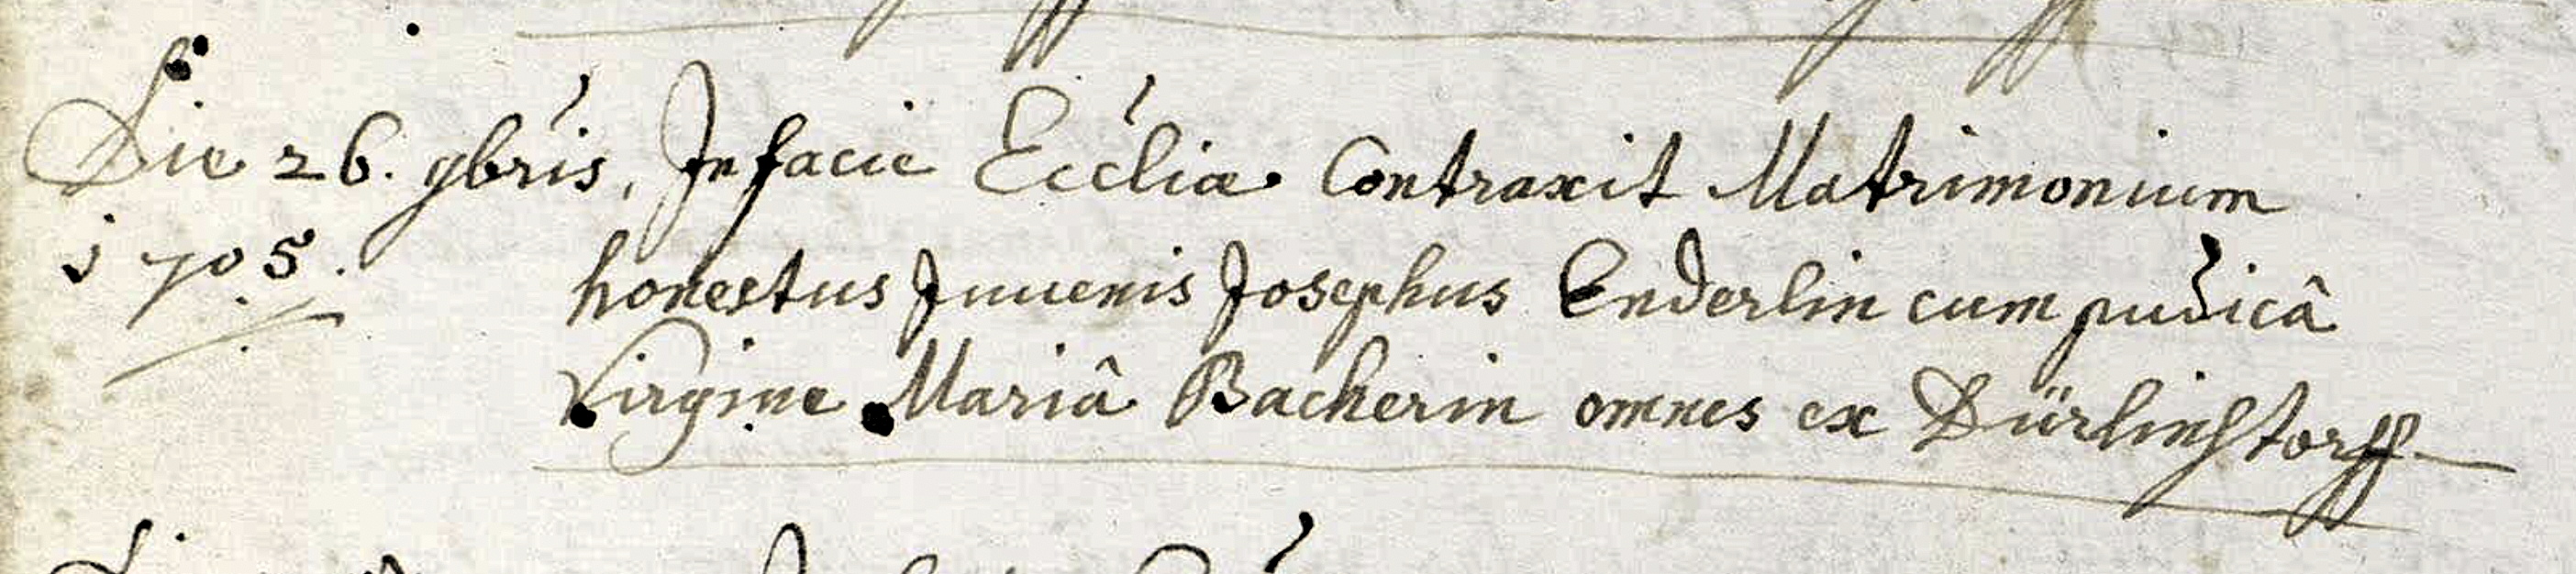 Die 26. 9bris, In facie Ecclia Contraxit Matrimonium
1705. honestus Juuenis Josephus Enderlin cum pudicâ
Virgine Mariâ Bacherin omnes ex Dürlinstorff